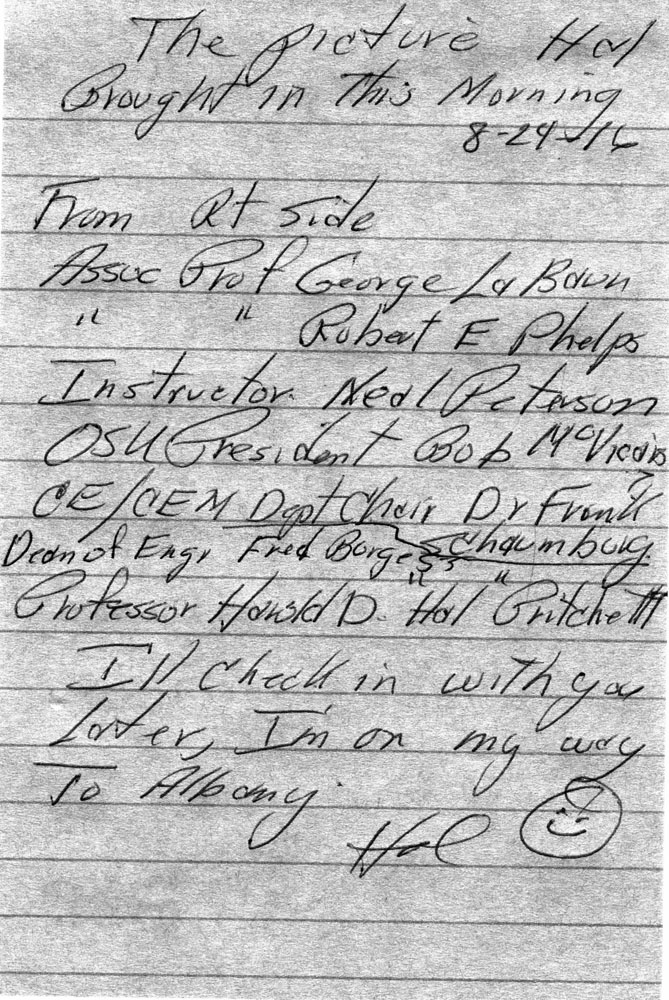 The picture Hal
Brought in This Morning
8-24-16
From Rt side
Assoc Prof George La Baun
" " Robert E Phelps
Instructor Neal Peterson
OSU President Bob McVicar
CE/CEM Dept Chair Dr Frank
Schaumburg
Dean of Engr Fred Burgess
Professor Harold D. "Hal" Pritchett
I'll check in with you
Later, I'm on my way
To Albany.
Hal